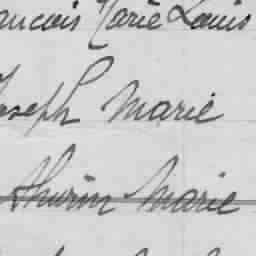 ançois Marie Louis
Joseph Marie
Marie